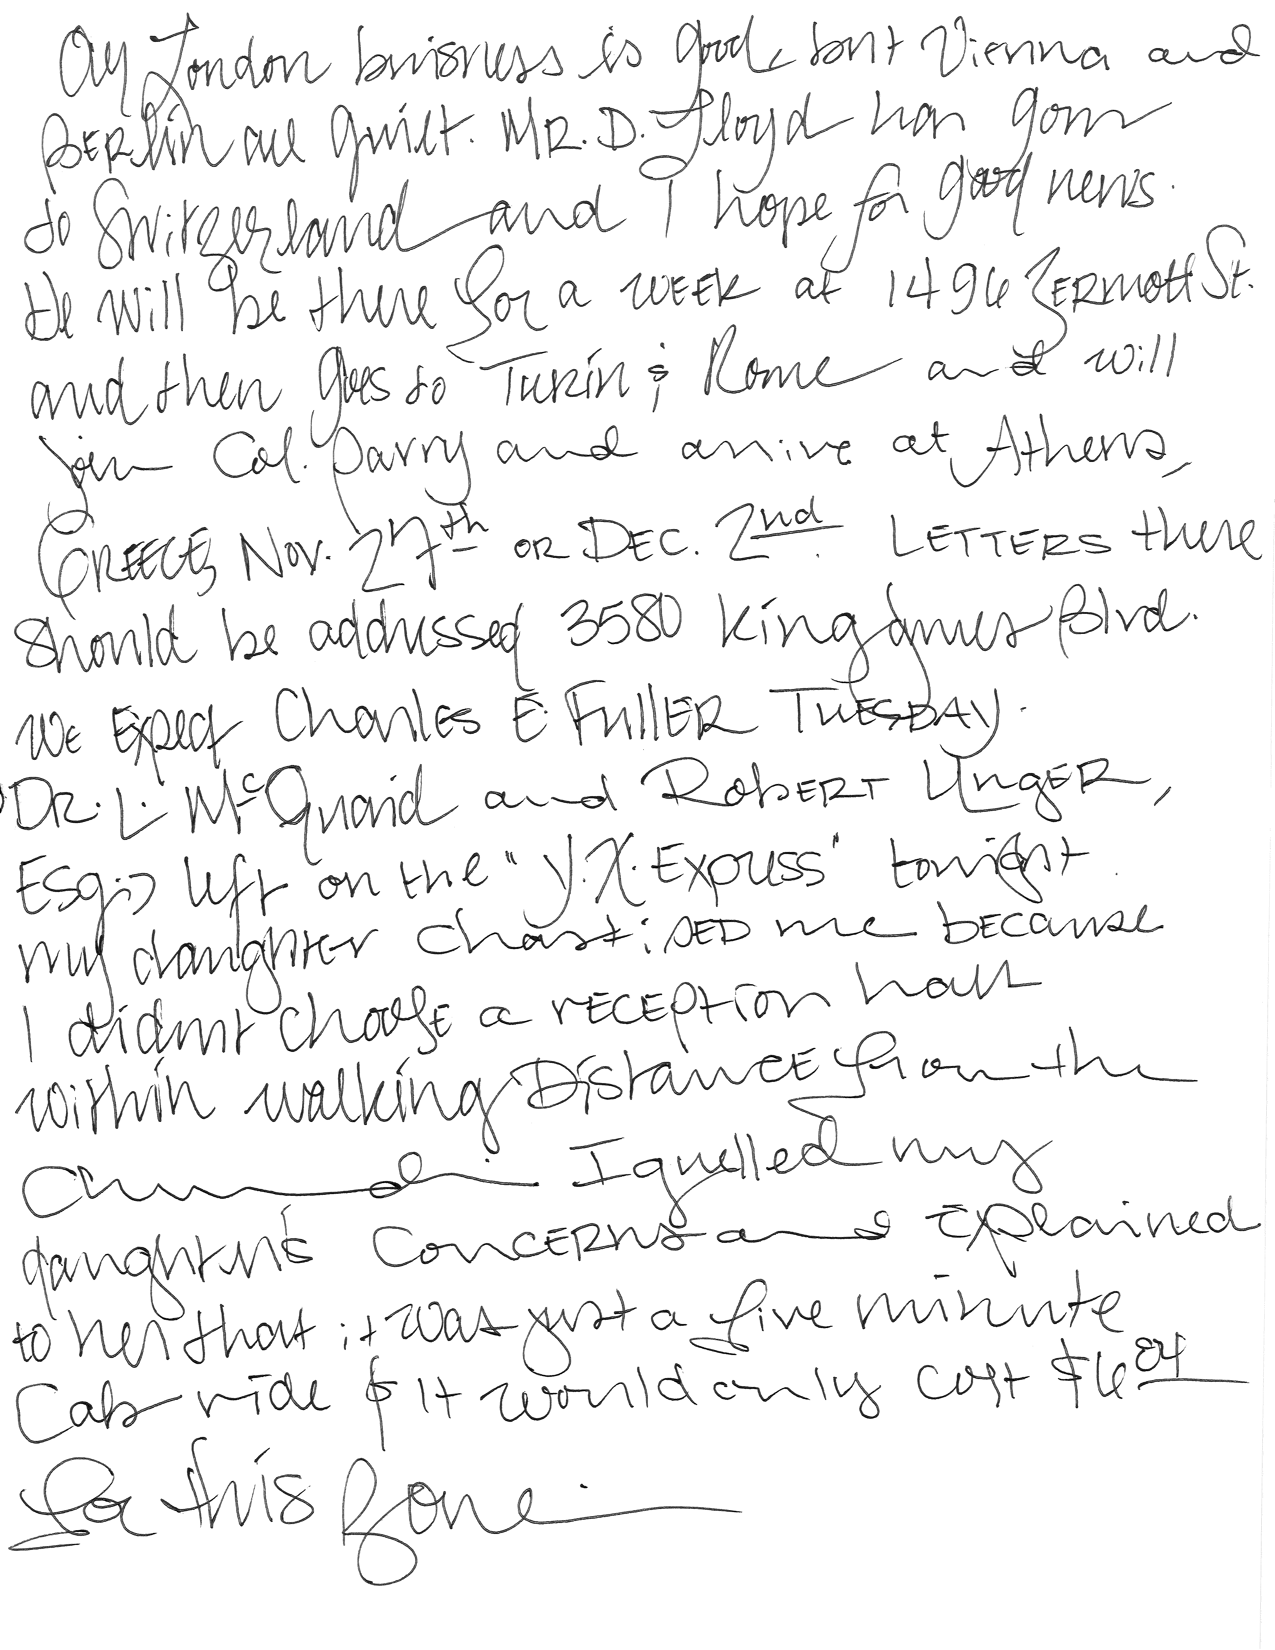 Our London buisness is good, but Vienna and
BERlin are quiet. MR. D. Lloyd has gone
to Switzerland and I hope for good news.
He will be there for a WEEK at 1496 ZERmott St.
and then goes to TURin & Rome and will
join Col. Parry and arrive at Athens,
GREECE, Nov. 27th OR DEC. 2nd. LETTERS there
should be addressed 3580 King James Blvd.
WE Expect Charles E. FullER TUESDAY.
DR. L. McQuaid and RobERT UngER,
Esq., left on the "Y.X. Express" tonight.
my daughter chastisED me bECause
I didnt choose a rECEption hall
within walking DistancE from the
Church. I quelled my
daughter's ConcERns and Explained
to her that it was just a five minute
Cab ride & It would only cost $6.04
for this Zone.